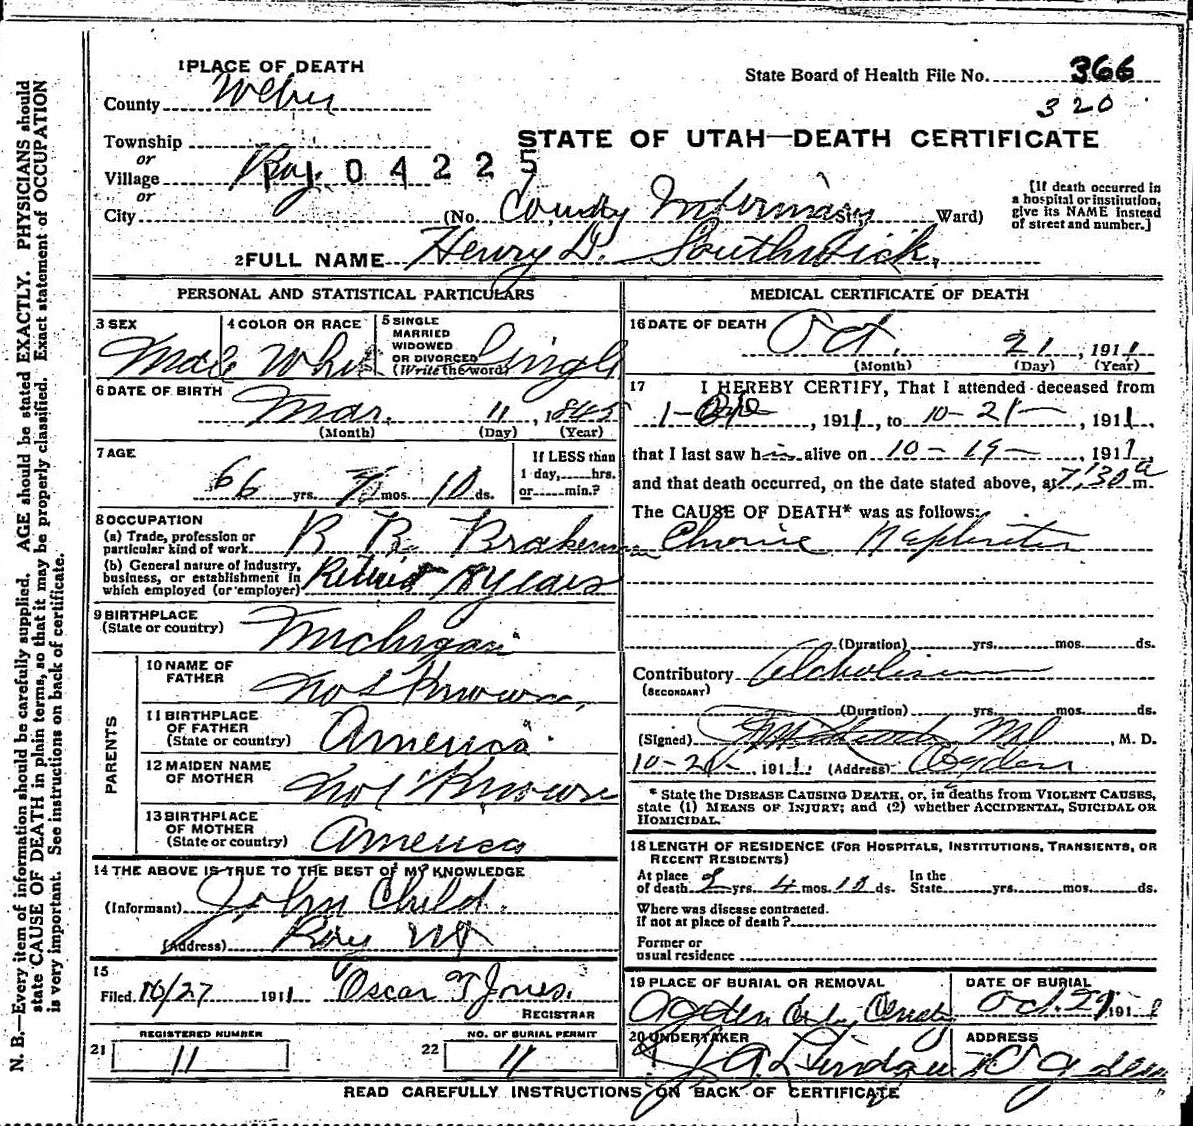 1 PLACE OF DEATH
County Weber
Township
or
Village Roy. 04225
or
City
State Board of Health File No. 366
320
STATE OF UTAH—DEATH CERTIFICATE
(No. County Infirmary St., Ward)
[If death occurred in
a hospital or institution,
give its NAME instead
of street and number.]
2 FULL NAME Henry D. Southwick,
PERSONAL AND STATISTICAL PARTICULARS
3 SEX
Male
4 COLOR OR RACE
White
5 SINGLE
MARRIED
WIDOWED
OR DIVORCED
(Write the word)
Single
6 DATE OF BIRTH
Mar. 11, 1845
(Month) (Day) (Year)
7 AGE
66 yrs. 7 mos. 10 ds.
If LESS than
1 day, hrs.
or min.?
8 OCCUPATION
(a) Trade, profession or
particular kind of work R R Brakeman
(b) General nature of industry,
business, or establishment in
which employed (or employer) Retired 8 years
9 BIRTHPLACE
(State or country) Michigan
PARENTS
10 NAME OF
FATHER Not Known,
11 BIRTHPLACE
OF FATHER
(State or country) America.
12 MAIDEN NAME
OF MOTHER Not Known
13 BIRTHPLACE
OF MOTHER
(State or country) America
14 THE ABOVE IS TRUE TO THE BEST OF MY KNOWLEDGE
(Informant) John Child.
(Address) Roy Ut
15
Filed 10/27 1911 Oscar T Jones.
REGISTRAR
REGISTERED NUMBER
21 11
NO. OF BURIAL PERMIT
22 11
MEDICAL CERTIFICATE OF DEATH
16 DATE OF DEATH
Oct. 21, 1911
(Month) (Day) (Year)
17 I HEREBY CERTIFY, That I attended deceased from
1- , 1911, to 10-21- , 1911,
that I last saw him alive on 10-19- , 1911,
and that death occurred, on the date stated above, at 7:30 a m.
The CAUSE OF DEATH* was as follows:
Chronic Nephritis
(Duration) yrs. mos. ds.
Contributory Alcholism
(SECONDARY)
(Duration) yrs. mos. ds.
(Signed) MD, M. D.
10-21-, 1911. (Address) Ogden
* State the DISEASE CAUSING DEATH, or, in deaths from VIOLENT CAUSES,
state (1) MEANS OF INJURY; and (2) whether ACCIDENTAL, SUICIDAL OR
HOMICIDAL.
18 LENGTH OF RESIDENCE (FOR HOSPITALS, INSTITUTIONS, TRANSIENTS, OR
RECENT RESIDENTS)
At place
of death yrs. 4 mos. 10 ds.
In the
State yrs. mos. ds.
Where was disease contracted.
If not at place of death?
Former or
usual residence
19 PLACE OF BURIAL OR REMOVAL
Ogden City
DATE OF BURIAL
Oct. 191
20 UNDERTAKER
Lindquist
ADDRESS
Ogden
READ CAREFULLY INSTRUCTIONS ON BACK OF CERTIFICATE
N. B.—Every item of information should be carefully supplied. AGE should be stated EXACTLY. PHYSICIANS should
state CAUSE OF DEATH in plain terms, so that it may be properly classified. Exact statement of OCCUPATION
is very important. See instructions on back of certificate.